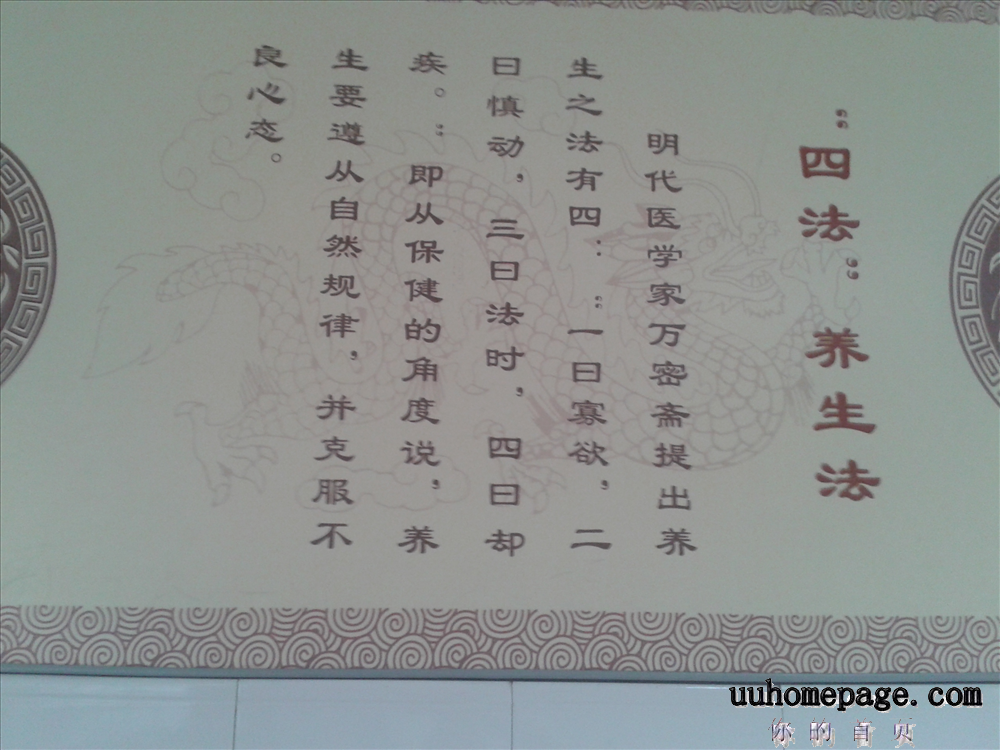 “四法”养生法
明代医学家万密斋提出养
生之法有四：“一曰寡欲，二
曰慎动，三曰法时，四曰却
疾。”即从保健的角度说，养
生要遵从自然规律，并克服不
良心态。
uuhomepage.com
你的首页